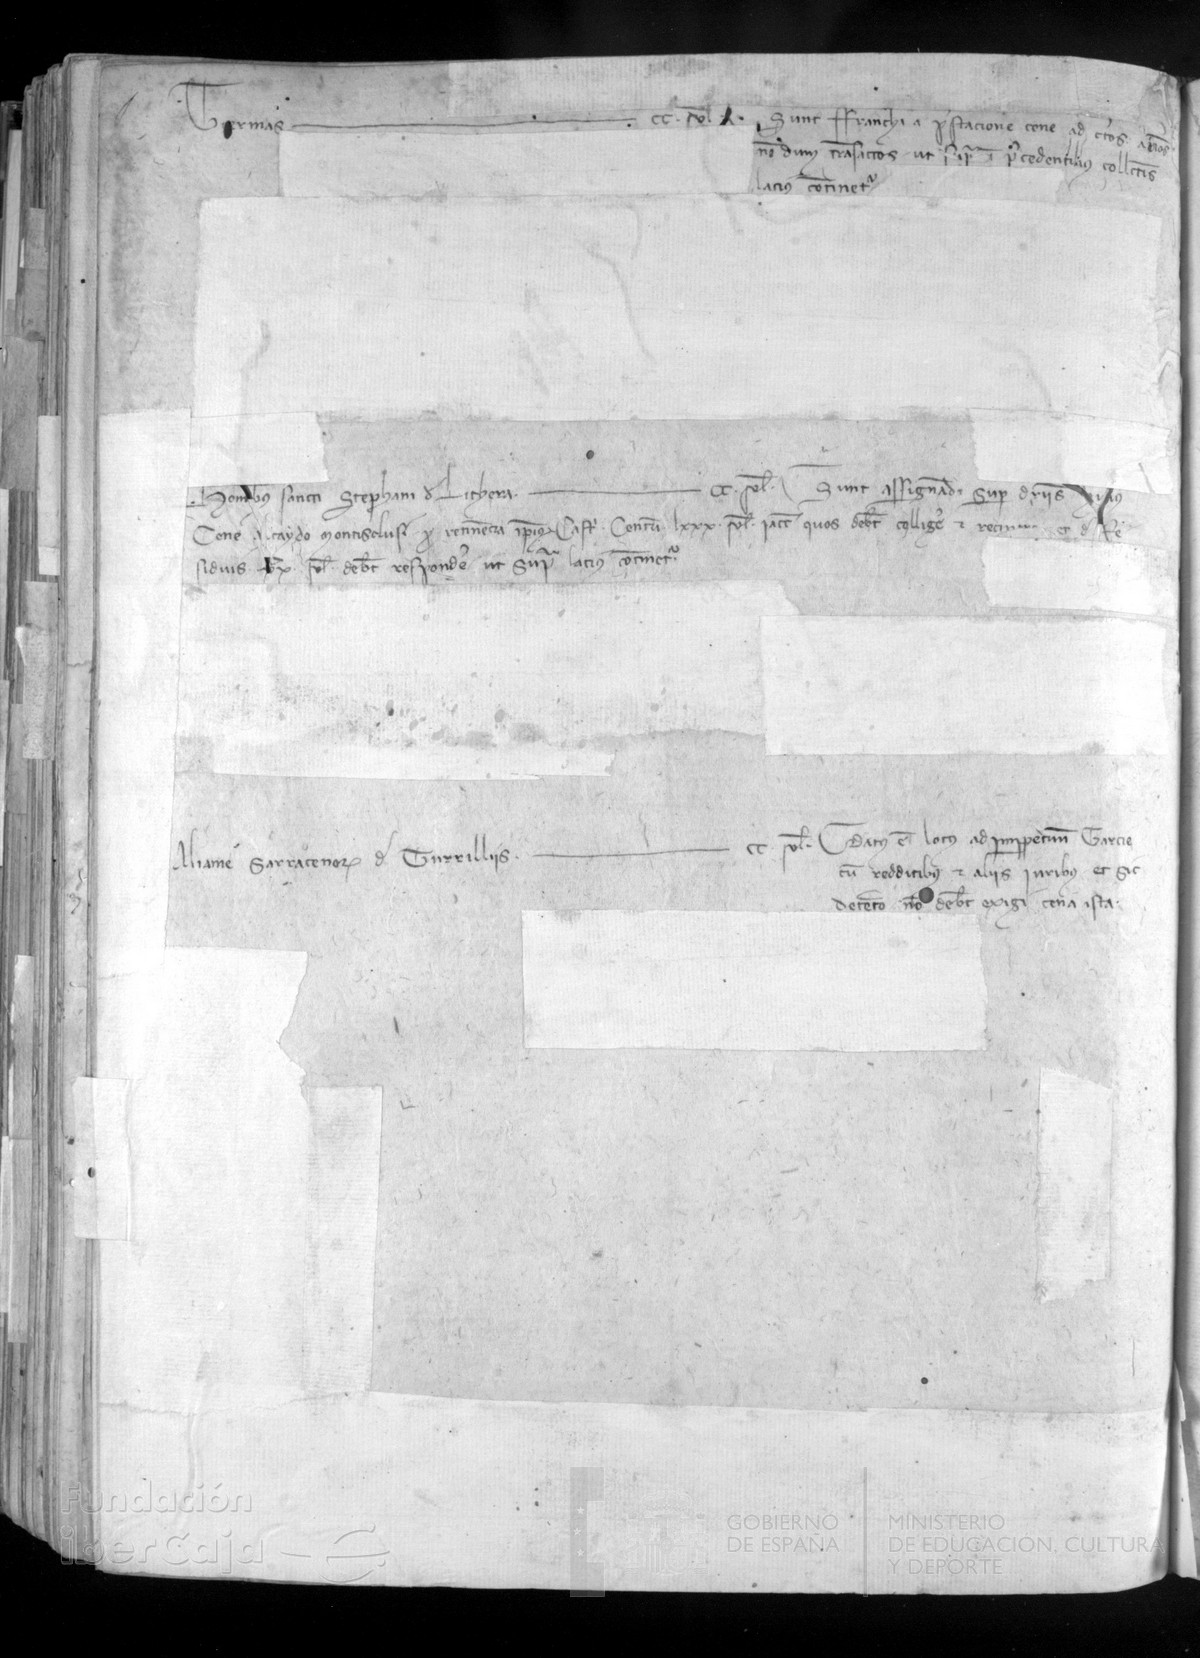 Termas CC. sol. Sunt ffranchi a prstacione cene ad ctos. annos
no dum trasactos ut supr i prcedentibus collectis
lacius continetr
Hominibus sancti Stephani d Lithera. CC. sol. Sunt assignad. sup driis
Cene Alcaydo montisclusi pro retinencia ipius Castr. Centu lxxx. sol. iacc quos debet collige & recipere et d Re
siduis xx. sol. debet responde ut Supr lacius continetr
Aliame Sarracenorum d Turrillis. CC sol. Datus est locus ad imppetuum Garcie
cu redditibus & aliis iuribus et sic
detento no debet exigi cena ista.
Fundación
iberCaja
GOBIERNO
DE ESPAÑA
MINISTERIO
DE EDUCACIÓN, CULTURA
Y DEPORTE